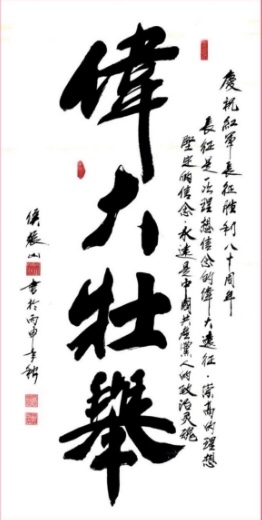 慶祝紅軍長征勝利八十周年
長征是一次理想信念的偉大遠征·崇高的理想
堅定的信念·永遠是中國共產黨人的政治灵魂
偉大壯舉
張山
書於丙申年秋